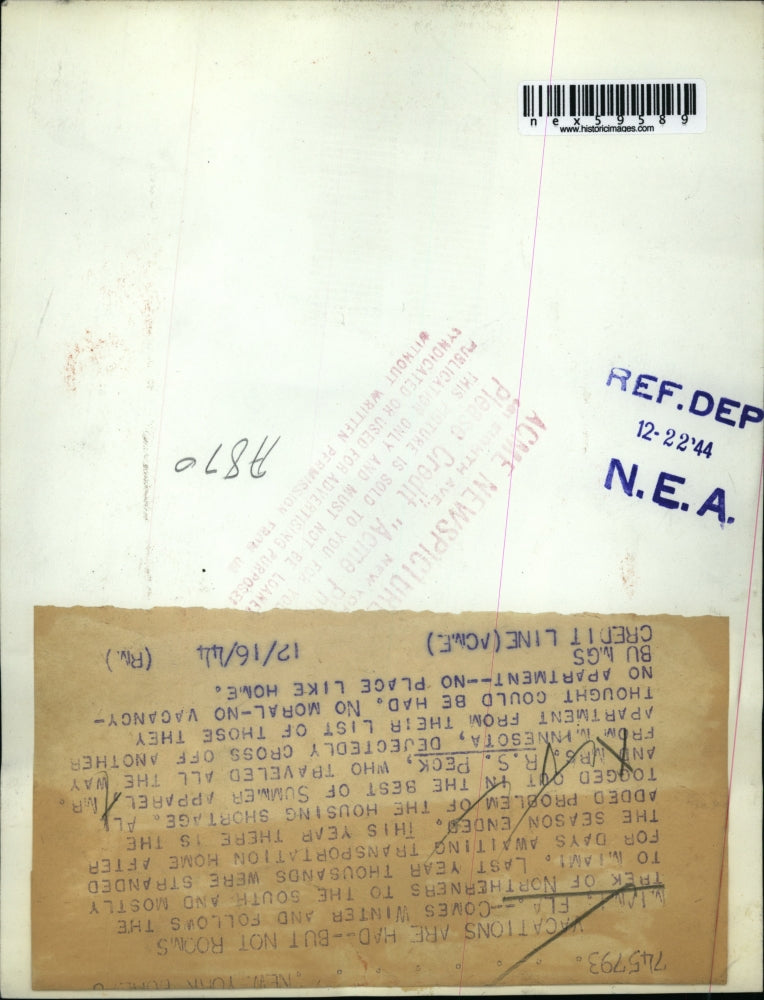 nex59589
www.historicimages.com
REF.DEP
12-22'44
N.E.A.
A870
ACME NEWSPICTURE
EIGHTH AVE.,
Please Credit "Acme
THIS PICTURE IS SOLD TO YOU FOR YOU
PUBLICATION ONLY AND MUST NOT BE LOANE
SYNDICATED OR USED FOR ADVERTISING PURPOSE
WITHOUT WRITTEN PERMISSION FROM US
NEW YORK
745793
VACATIONS ARE HAD--BUT NOT ROOMS
MIAMI, FLA.--COMES WINTER AND FOLLOWS THE
TREK OF NORTHERNERS TO THE SOUTH AND MOSTLY
TO MIAMI. LAST YEAR THOUSANDS WERE STRANDED
FOR DAYS AWAITING TRANSPORTATION HOME AFTER
THE SEASON ENDED. THIS YEAR THERE IS THE
ADDED PROBLEM OF THE HOUSING SHORTAGE. ALL
TOGGED OUT IN THE BEST OF SUMMER APPAREL MR.
AND MRS. R.S. PECK, WHO TRAVELED ALL THE WAY
FROM MINNESOTA, DEJECTEDLY CROSS OFF ANOTHER
APARTMENT FROM THEIR LIST OF THOSE THEY
THOUGHT COULD BE HAD. NO MORAL-NO VACANCY-
NO APARTMENT--NO PLACE LIKE HOME.
BU MGS
CREDIT LINE (ACME) 12/16/44 (RM)